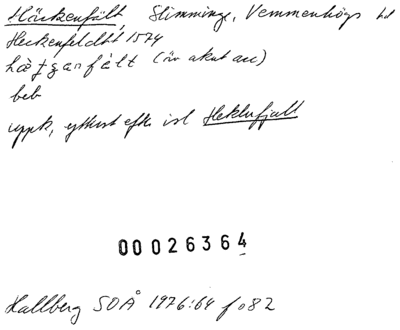 Häckenfält, Slimminge, Vemmenhögs hd
Heckenfeldht 1574
(öv akut acc)
beb
uppk, efter isl Heklufjall
00026364
Hallberg SOÅ 1976:64 f o 82